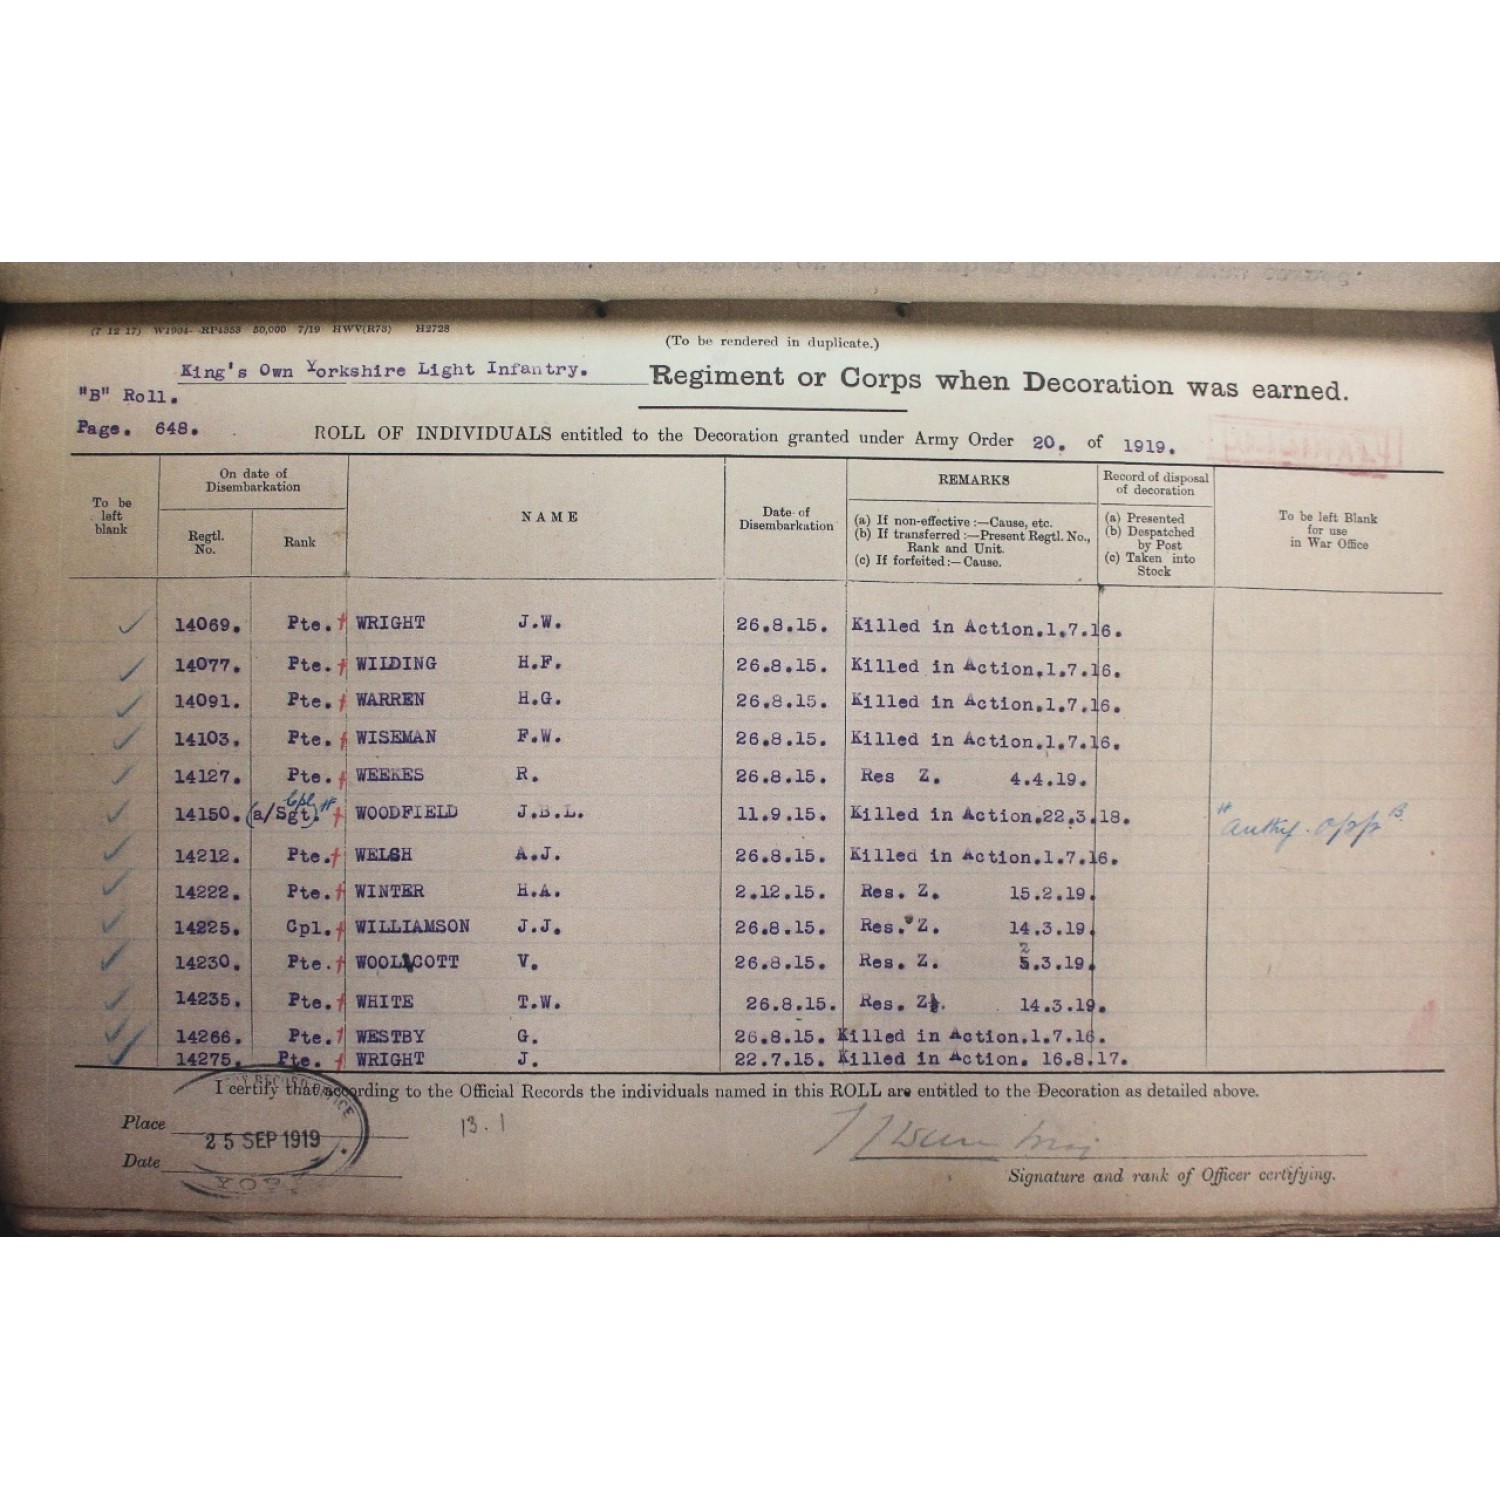 (7 12 17) W1904- RP4353 50,000 7/19 HWV(R73) H2728
(To be rendered in duplicate.)
King's Own Yorkshire Light Infantry. Regiment or Corps when Decoration was earned.
"B" Roll.
Page. 648. ROLL OF INDIVIDUALS entitled to the Decoration granted under Army Order 20. of 1919.
To be left blank
On date of Disembarkation
Regtl. No.
Rank
NAME
Date of Disembarkation
REMARKS
(a) If non-effective :—Cause, etc.
(b) If transferred :—Present Regtl. No., Rank and Unit.
(c) If forfeited :—Cause.
Record of disposal of decoration
(a) Presented
(b) Despatched by Post
(c) Taken into Stock
To be left Blank for use in War Office
14069. Pte. WRIGHT J.W. 26.8.15. Killed in Action.1.7.16.
14077. Pte. WILDING H.F. 26.8.15. Killed in Action.1.7.16.
14091. Pte. WARREN H.G. 26.8.15. Killed in Action.1.7.16.
14103. Pte. WISEMAN F.W. 26.8.15. Killed in Action.1.7.16.
14127. Pte. WEEKES R. 26.8.15. Res Z. 4.4.19.
Cpl
14150. (a/Sgt). WOODFIELD J.B.L. 11.9.15. Killed in Action.22.3.18.
14212. Pte. WELSH A.J. 26.8.15. Killed in Action.1.7.16.
14222. Pte. WINTER H.A. 2.12.15. Res. Z. 15.2.19.
14225. Cpl. WILLIAMSON J.J. 26.8.15. Res. Z. 14.3.19.
14230. Pte. WOOLLCOTT V. 26.8.15. Res. Z. 3.19.
14235. Pte. WHITE T.W. 26.8.15. Res. Z. 14.3.19.
14266. Pte. WESTBY G. 26.8.15. Killed in Action.1.7.16.
14275. Pte. WRIGHT J. 22.7.15. Killed in Action. 16.8.17.
I certify that according to the Official Records the individuals named in this ROLL are entitled to the Decoration as detailed above.
Place
25 SEP 1919
Date
13.1
Signature and rank of Officer certifying.